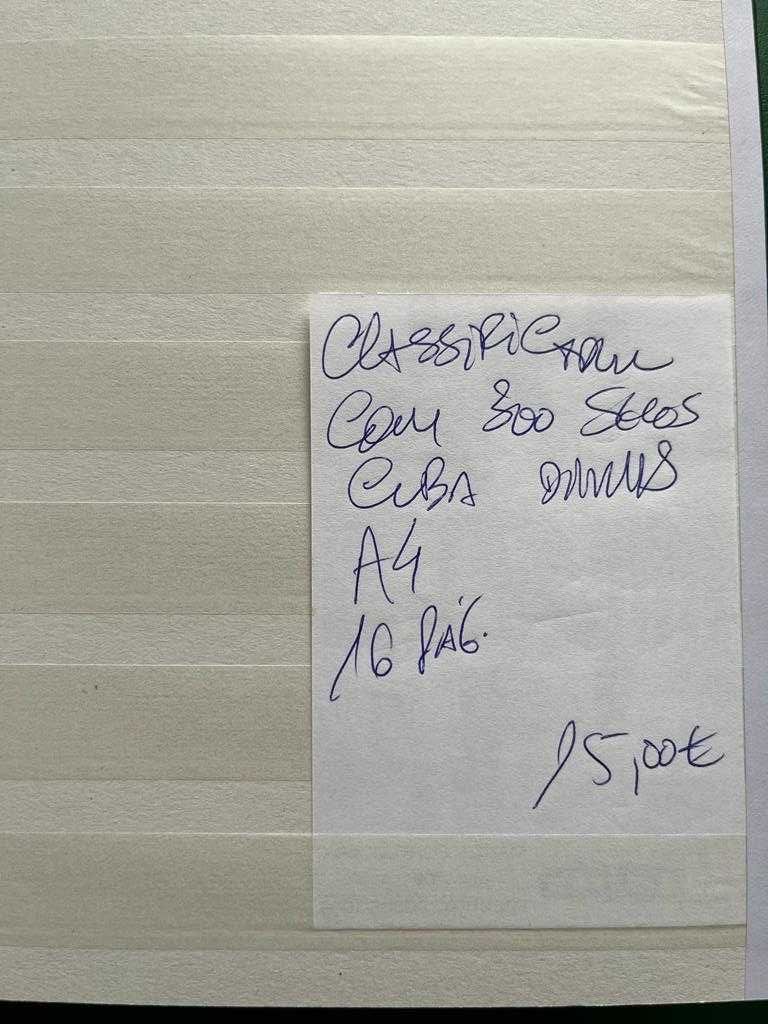 CLASSIFICADOR
COM 300 SELOS
CUBA
A4
16 PÁG.
15,00€